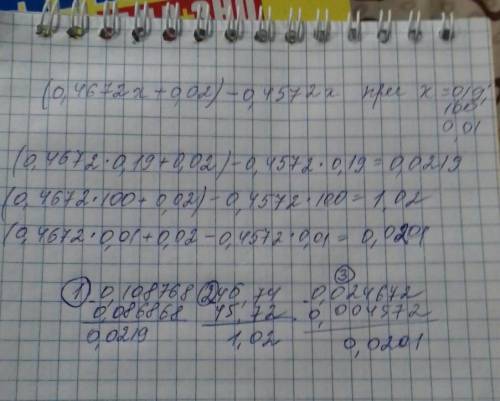 (0,4672x+0,02)-0,4572x при x=0,19;
100
0,01
(0,4672·0,19+0,02)-0,4572·0,19=0,0219
(0,4672·100+0,02)-0,4572·100=1,02
(0,4672·0,01+0,02-0,4572·0,01=0,0201
① 0,108768 ② 46,74 ③ 0,024672
0,086868 45,72 0,004572
0,0219 1,02 0,0201